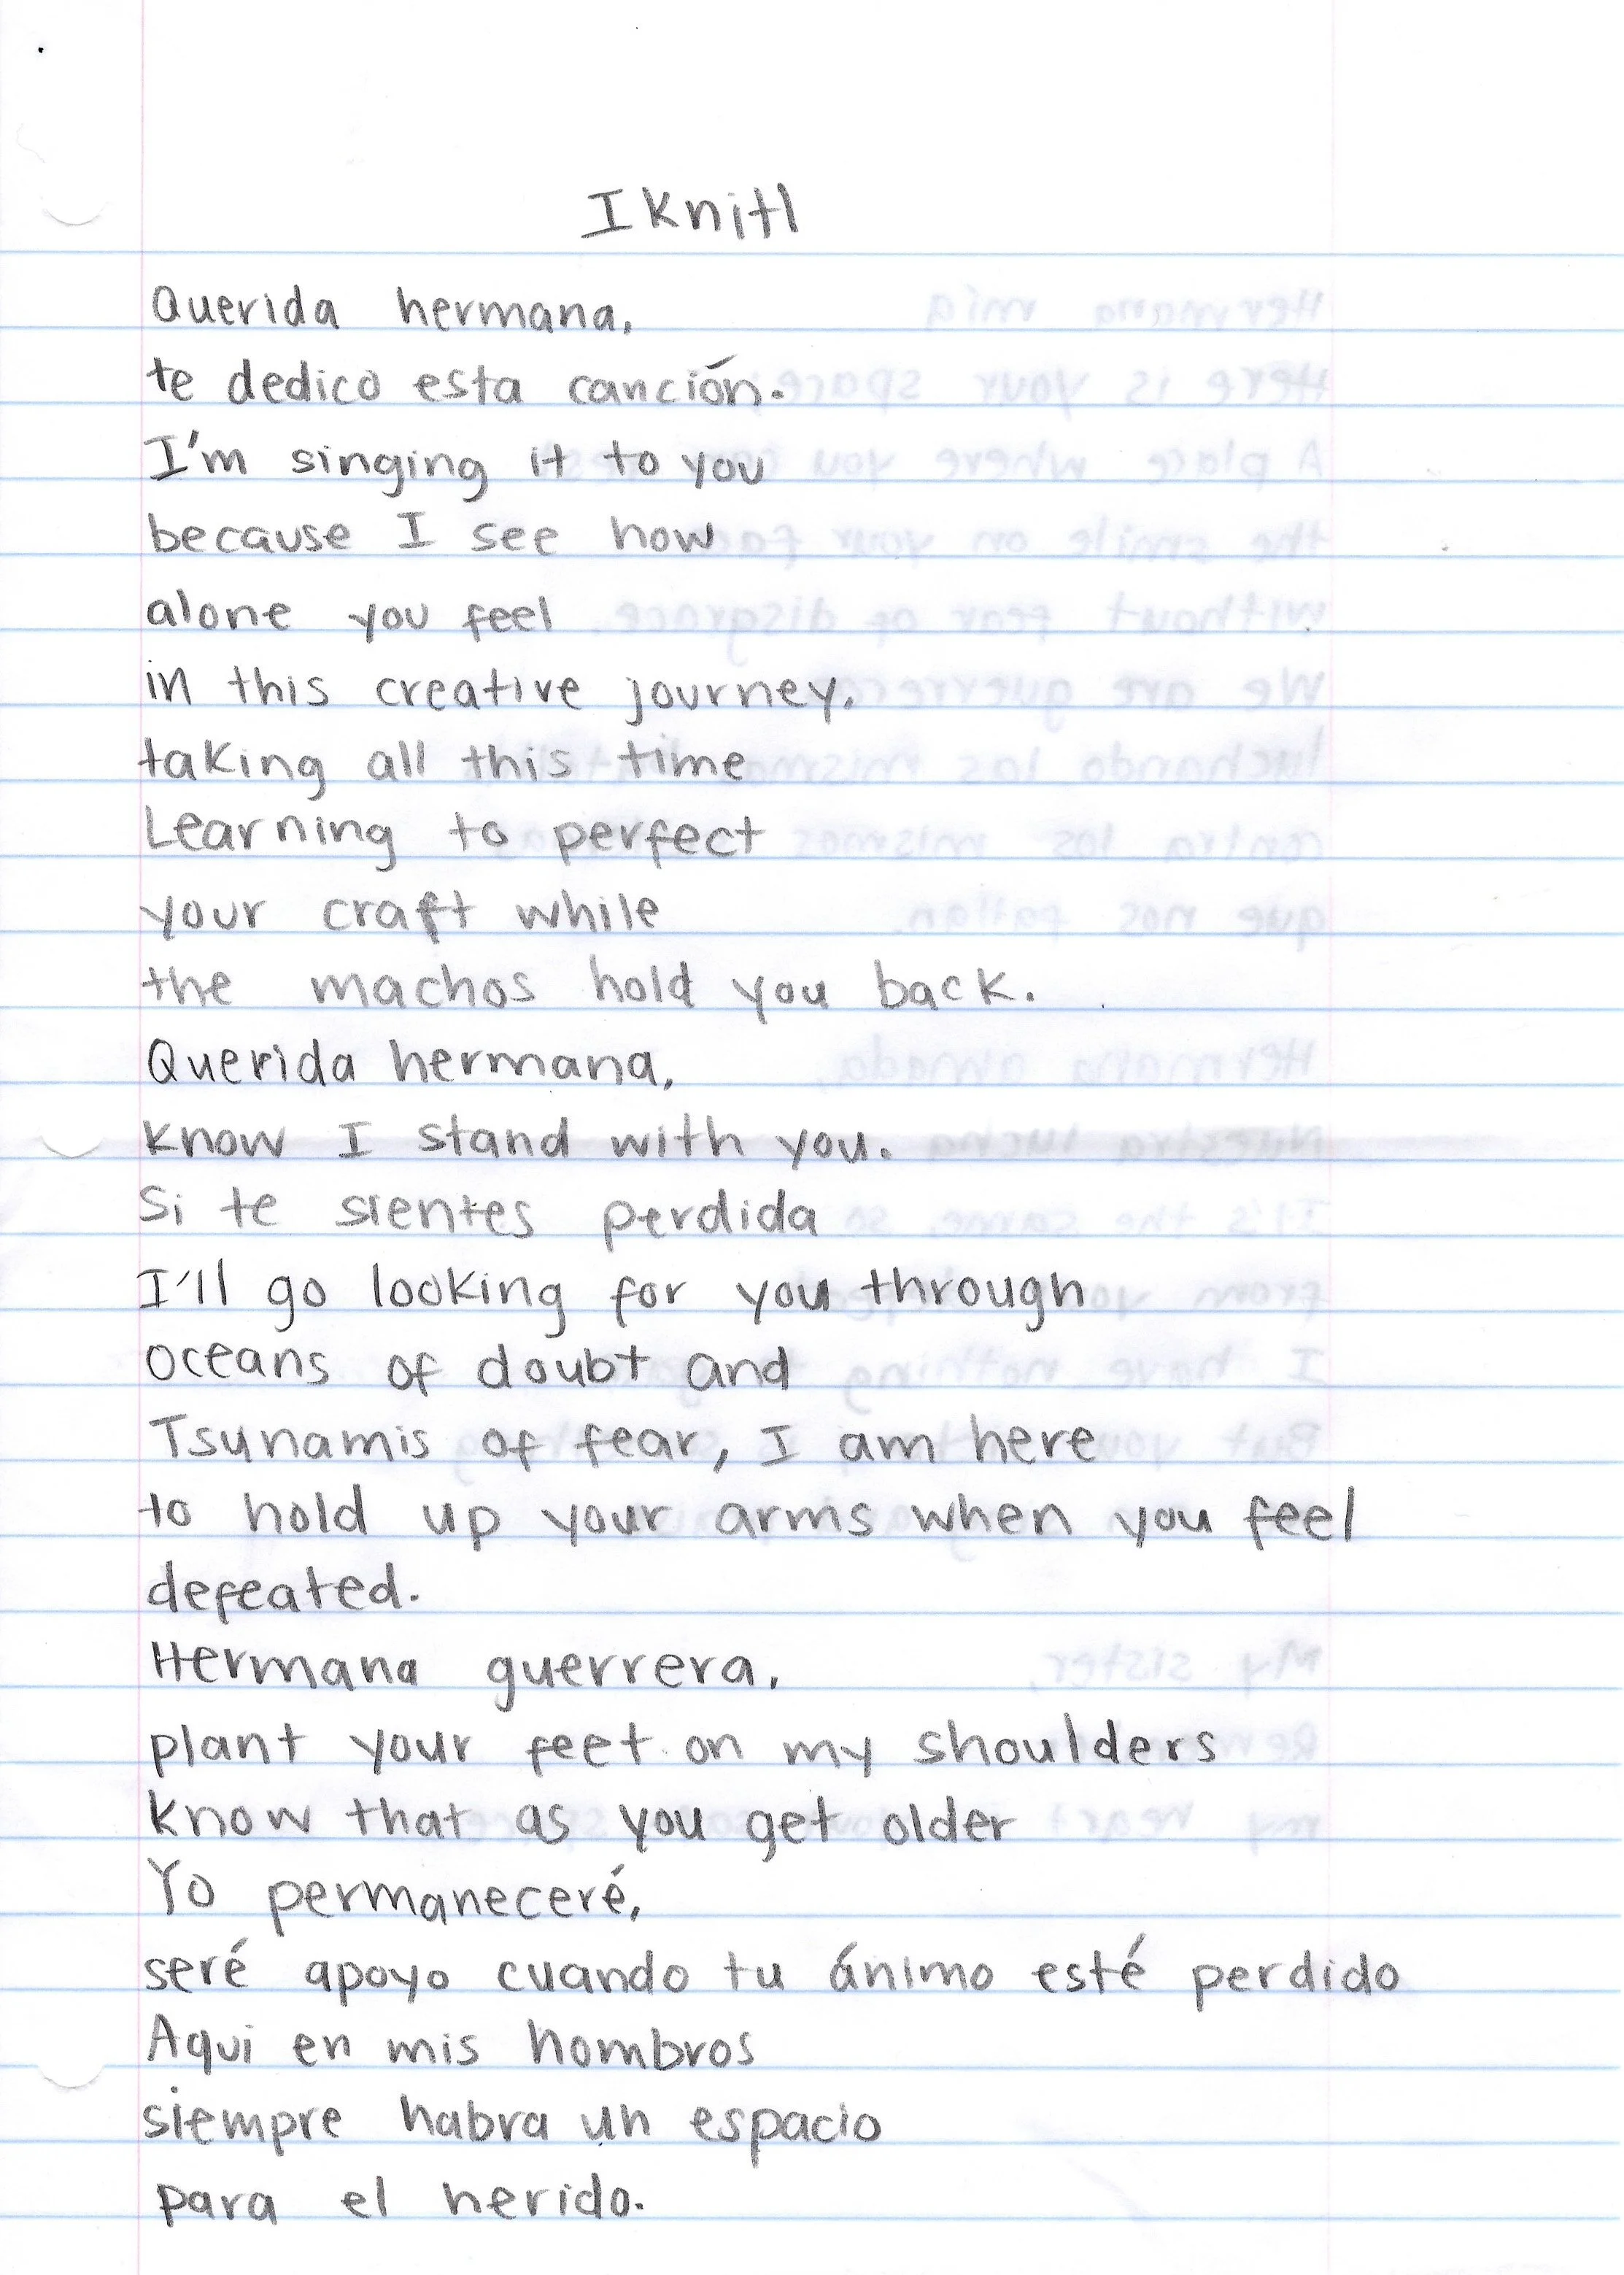 Iknitl
Querida hermana,
te dedico esta canción.
I'm singing it to you
because I see how
alone you feel
in this creative journey.
taking all this time
Learning to perfect
your craft while
the machos hold you back.
Querida hermana,
know I stand with you.
Si te sientes perdida
I'll go looking for you through
oceans of doubt and
Tsunamis of fear, I am here
to hold up your arms when you feel
defeated.
Hermana guerrera,
plant your feet on my shoulders
know that as you get older
Yo permaneceré,
seré apoyo cuando tu ánimo esté perdido
Aqui en mis hombros
siempre habra un espacio
para el herido.